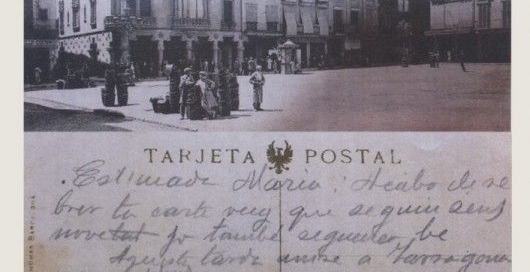 TARJETA POSTAL
Estimada Maria: Acabo de re
brer ta carta veig que seguiu sens
novetat jo també segueixo be
Aquesta tarda aniré a Tarragona